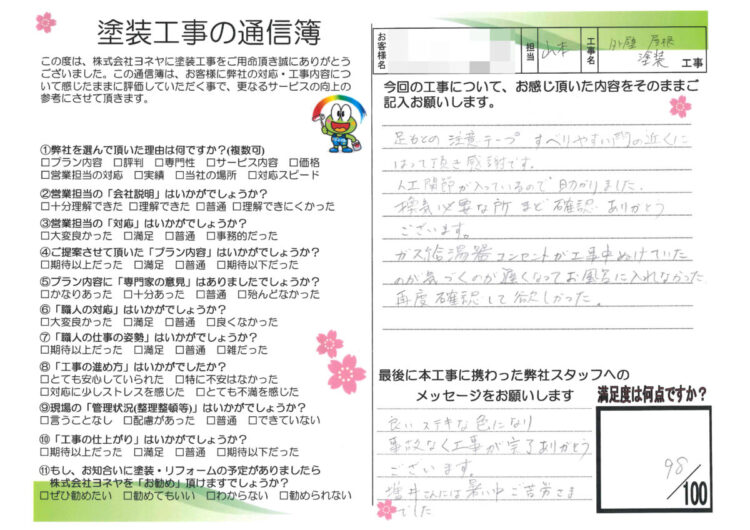 塗装工事の通信簿
この度は、株式会社ヨネヤに塗装工事をご用命頂き誠にありがとう
ございました。この通信簿は、お客様に弊社の対応・工事内容につ
いて感じたままに評価していただく事で、更なるサービスの向上の
参考にさせて頂きます。
①弊社を選んで頂いた理由は何ですか?(複数可)
□プラン内容 □評判 □専門性 □サービス内容 □価格
□営業担当の対応 □実績 □当社の場所 □対応スピード
②営業担当の「会社説明」はいかがでしょうか?
□十分理解できた □理解できた □普通 □理解できにくかった
③営業担当の「対応」はいかがでしょうか?
□大変良かった □満足 □普通 □事務的だった
④ご提案させて頂いた「プラン内容」はいかがでしょうか?
□期待以上だった □満足 □普通 □期待以下だった
⑤プラン内容に「専門家の意見」はありましたでしょうか?
□かなりあった □十分あった □普通 □殆んどなかった
⑥「職人の対応」はいかがでしょうか?
□大変良かった □満足 □普通 □良くなかった
⑦「職人の仕事の姿勢」はいかがでしょうか?
□期待以上だった □満足 □普通 □雑だった
⑧「工事の進め方」はいかがでしたか?
□とても安心していられた □特に不安はなかった
□対応に少しストレスを感じた □とても不満を感じた
⑨現場の「管理状況(整理整頓等)」はいかがでしょうか?
□言うことなし □配慮があった □普通 □できていない
⑩「工事の仕上がり」はいかがでしょうか?
□期待以上だった □満足 □普通 □期待以下だった
⑪もし、お知合いに塗装・リフォームの予定がありましたら
株式会社ヨネヤを「お勧め」頂けますでしょうか?
□ぜひ勧めたい □勧めてもいい □わからない □勧められない
お客様名
担当 山本
工事名 外壁 屋根
塗装 工事
今回の工事について、お感じ頂いた内容をそのままご
記入お願いします。
足もとの注意テープ すべりやすい門の近くに
はって頂き感謝です。
人工関節が入っているので助かりました。
換気必要な所まで確認ありがとう
ございます。
ガス給湯器コンセントが工事中ぬけていた
のが気づくのが遅くなってお風呂に入れなかった
再度確認して欲しかった。
最後に本工事に携わった弊社スタッフへの
メッセージをお願いします
良いステキな色になり
事故なく工事が完了ありがとう
ございます。
増井さんには暑い中ご苦労さま
でした
満足度は何点ですか?
98
/100